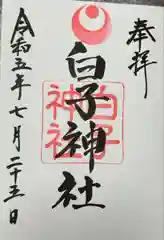 奉拝
白子神社
白子
神社
令和五年七月二十三日